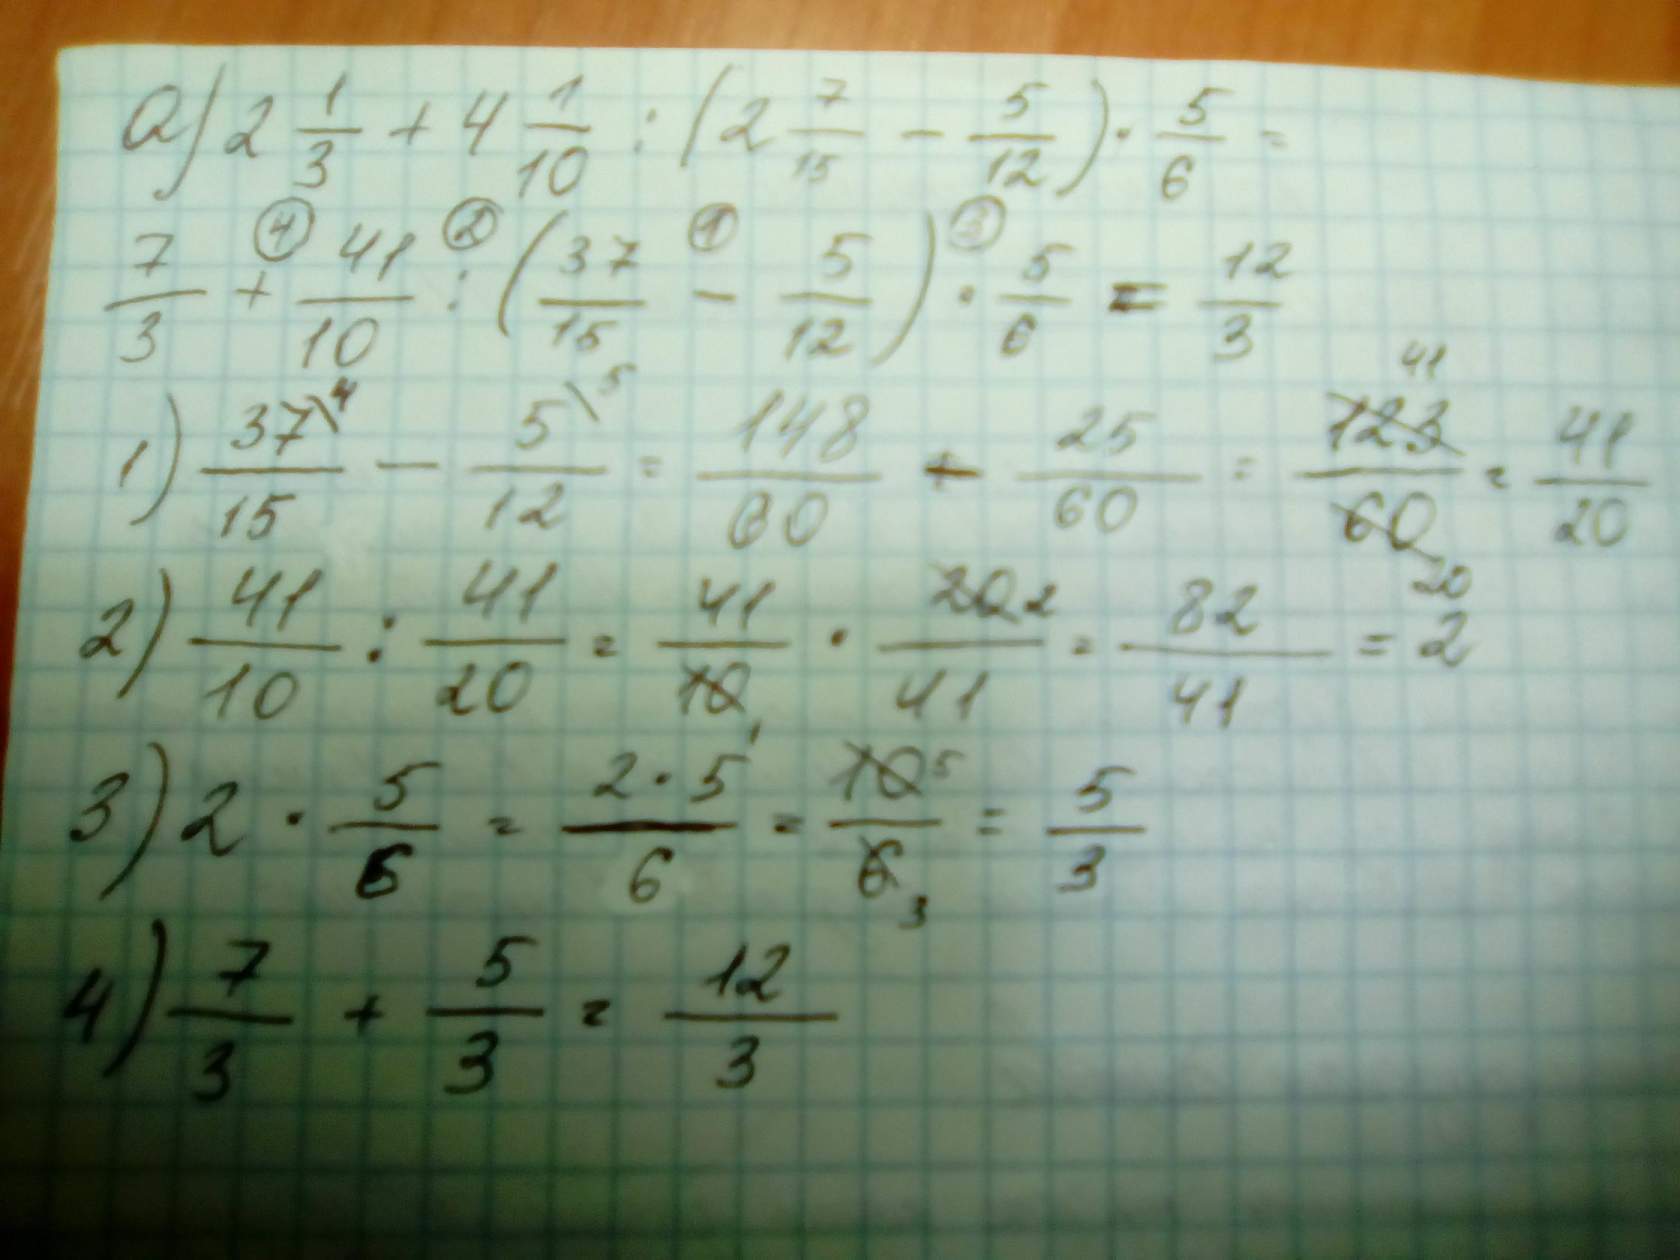 а) 2 1/3 + 4 1/10 : (2 7/15 - 5/12) · 5/6 =
7/3 +④ 41/10 :② (37/15 -① 5/12) ·③ 5/6 = 12/3
1) 37\4/15 - 5\5/12 = 148/60 - 25/60 = 123 41/60 20 = 41/20
2) 41/10 : 41/20 = 41/10 1 · 20 2/41 = 82/41 = 2
3) 2 · 5/6 = 2·5/6 = 10 5/6 3 = 5/3
4) 7/3 + 5/3 = 12/3